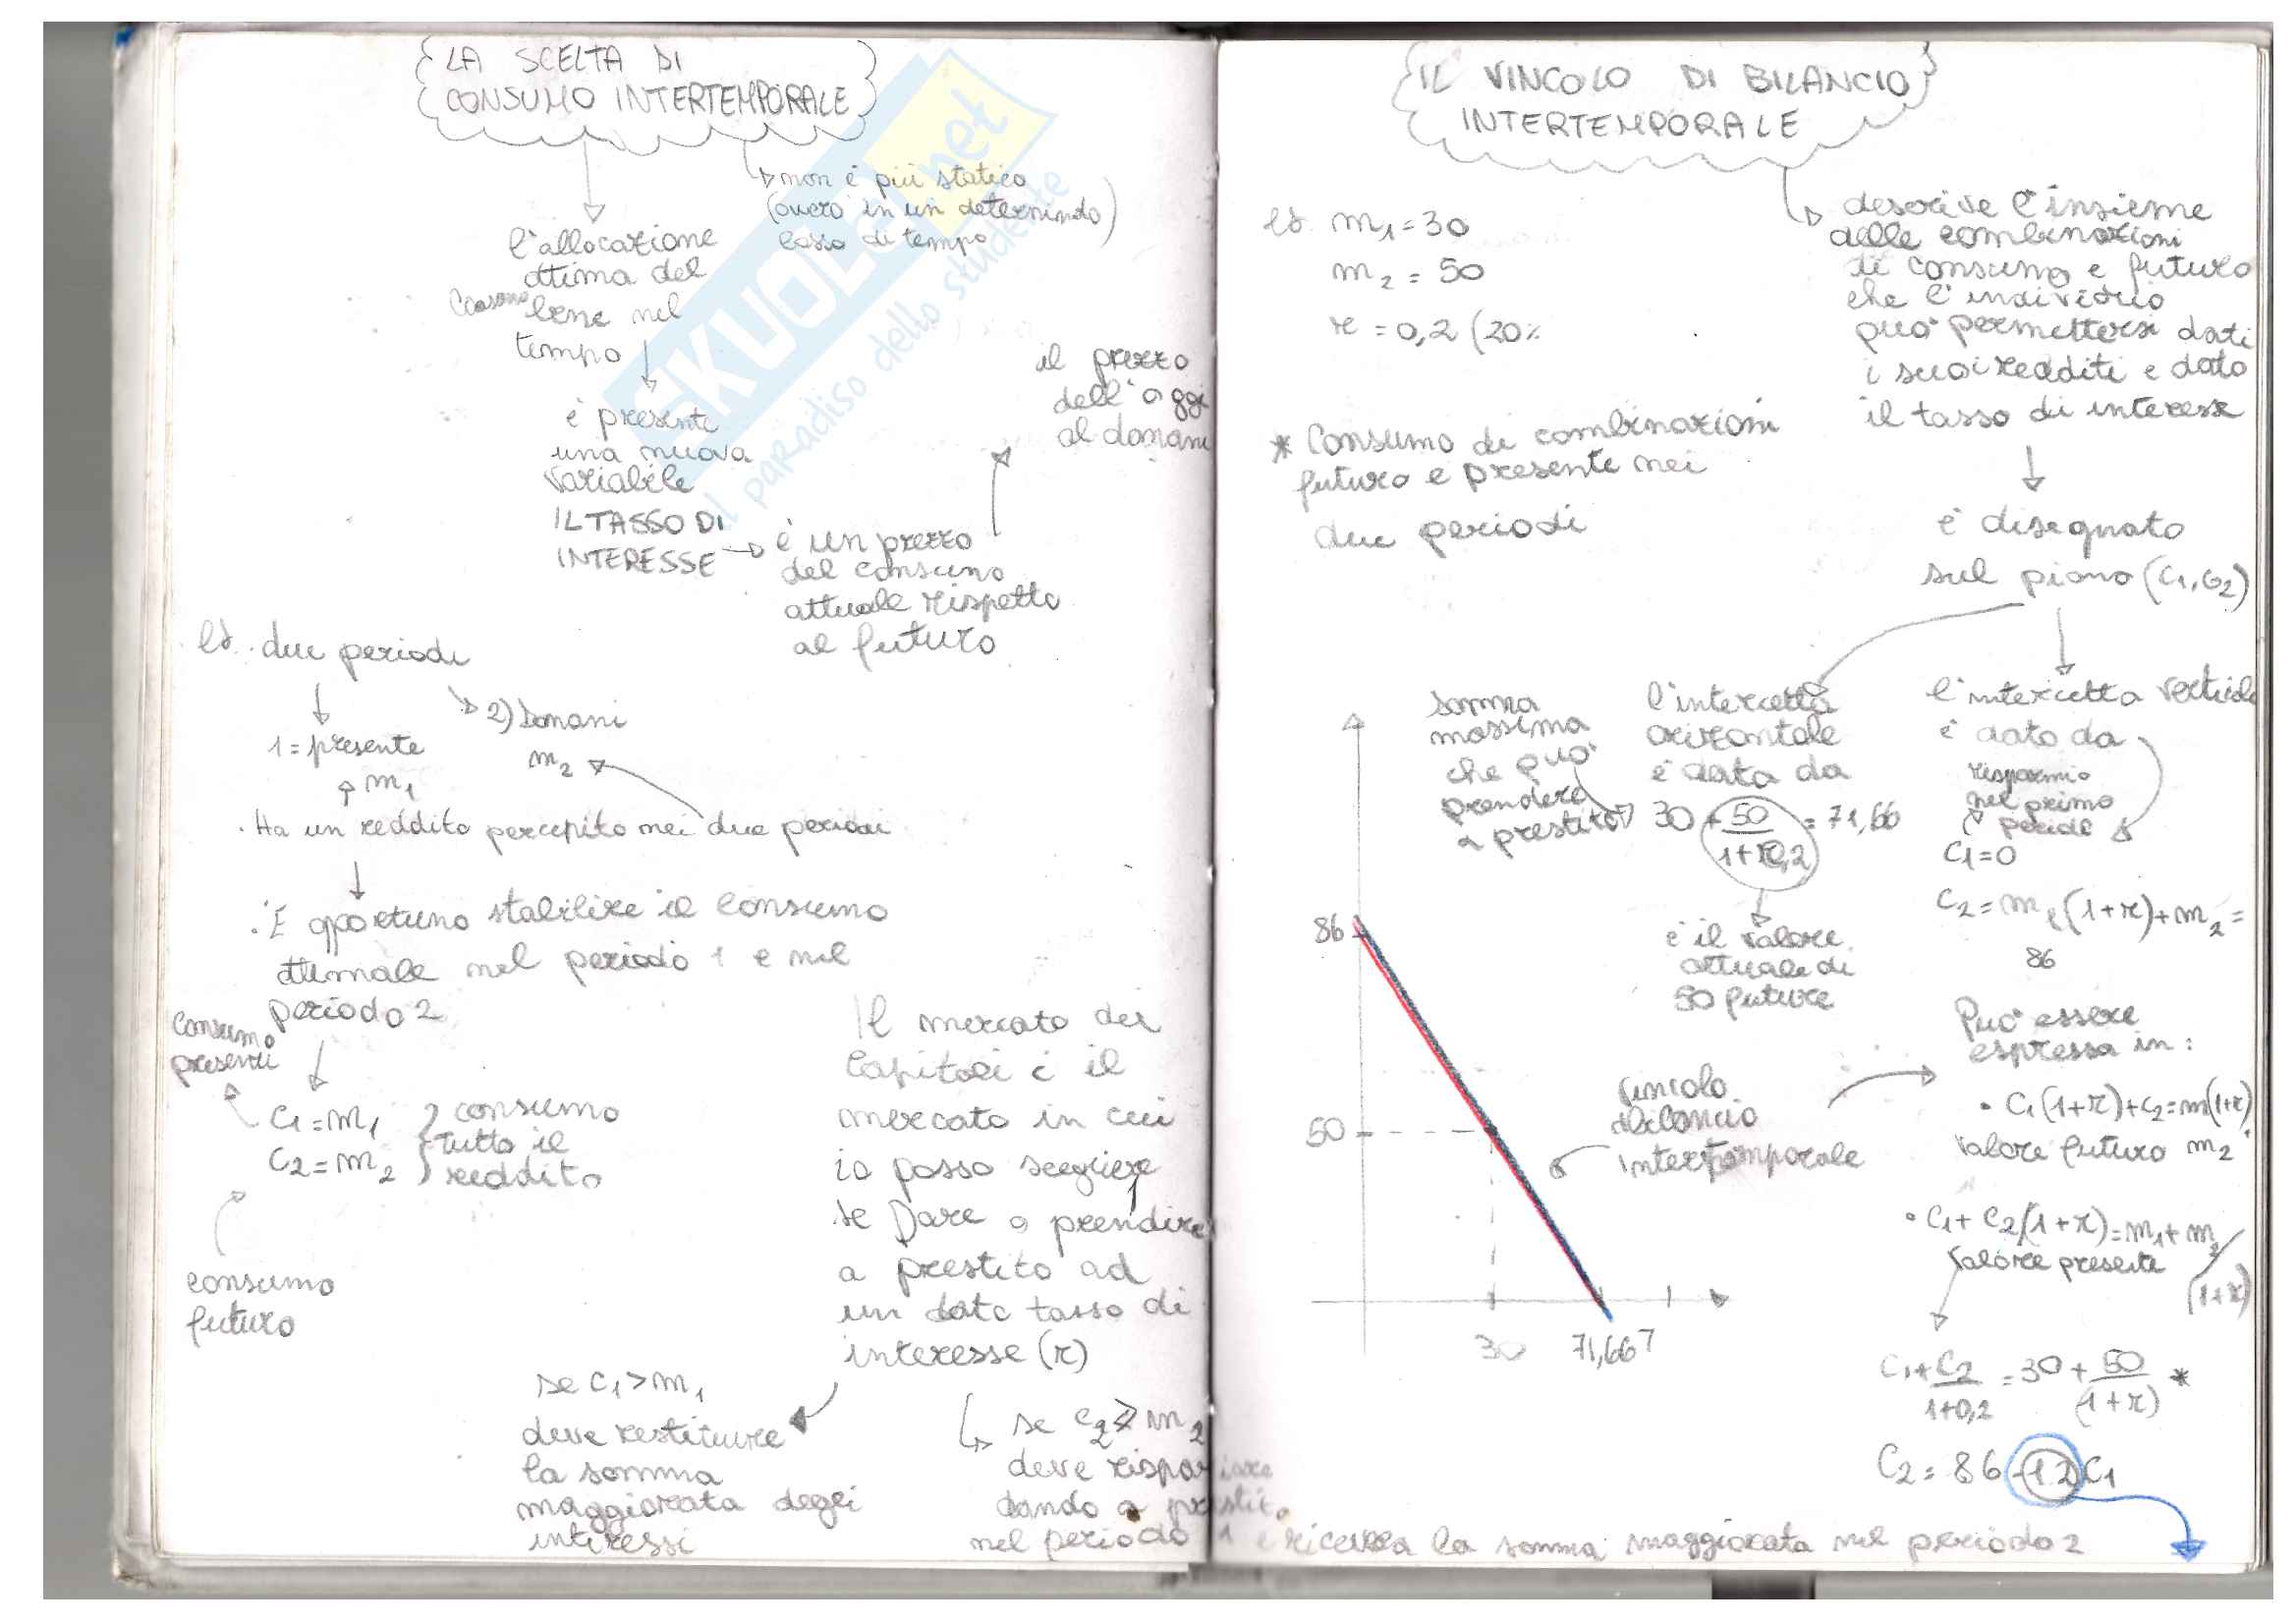 LA SCELTA DI
CONSUMO INTERTEMPORALE
non è più statico
(ovvero in un determindo)
lasso di tempo
l'allocazione
ottima del
Consumo bene nel
tempo
è presente
una nuova
variabile
IL TASSO DI
INTERESSE
è un prezzo
del consumo
attuale rispetto
al futuro
il prezzo
dell'oggi
al domani
es. due periodi
1 = presente
m1
2) Domani
m2
. Ha un reddito percepito nei due periodi
. È opportuno stabilire il consumo
ottimale nel periodo 1 e nel
periodo 2
consumo
presente
C1 = m1
C2 = m2
consumo
tutto il
reddito
consumo
futuro
Il mercato dei
Capitali è il
mercato in cui
io posso scegliere
se Dare o prendere
a prestito ad
un dato tasso di
interesse (r)
se C1 > m1
deve restituire
la somma
maggiorata degli
interessi
se C2 > m2
deve risparmiare
dando a prestito
nel periodo 1 e riceverà la somma maggiorata nel periodo 2
SKUOLA.net
il paradiso dello studente
IL VINCOLO DI BILANCIO
INTERTEMPORALE
es. m1 = 30
m2 = 50
r = 0,2 (20%
* Consumo di combinazioni
futuro e presente nei
due periodi
descrive l'insieme
delle combinazioni
di consumo e futuro
che l'individuo
può permettersi dati
i suoi redditi e dato
il tasso di interesse
è disegnato
sul piano (C1, C2)
somma
massima
che può
prendere
a prestito
l'intercetta
orizzontale
è data da
30 + 50/1+r0,2 = 71,66
è il valore
attuale di
50 future
l'intercetta verticale
è dato da
risparmio
nel primo
periodo
C1=0
C2 = m1(1+r)+m2 =
86
Può essere
espressa in:
• C1(1+r)+C2=m(1+r)
valore futuro m2
• C1+ C2/(1+r)=m1+m2/(1+r)
valore presente
C1+C2/1+0,2 = 30 + 50/(1+r) *
C2 = 86 -1.2 C1
vincolo
bilancio
intertemporale
86
50
30
71,667